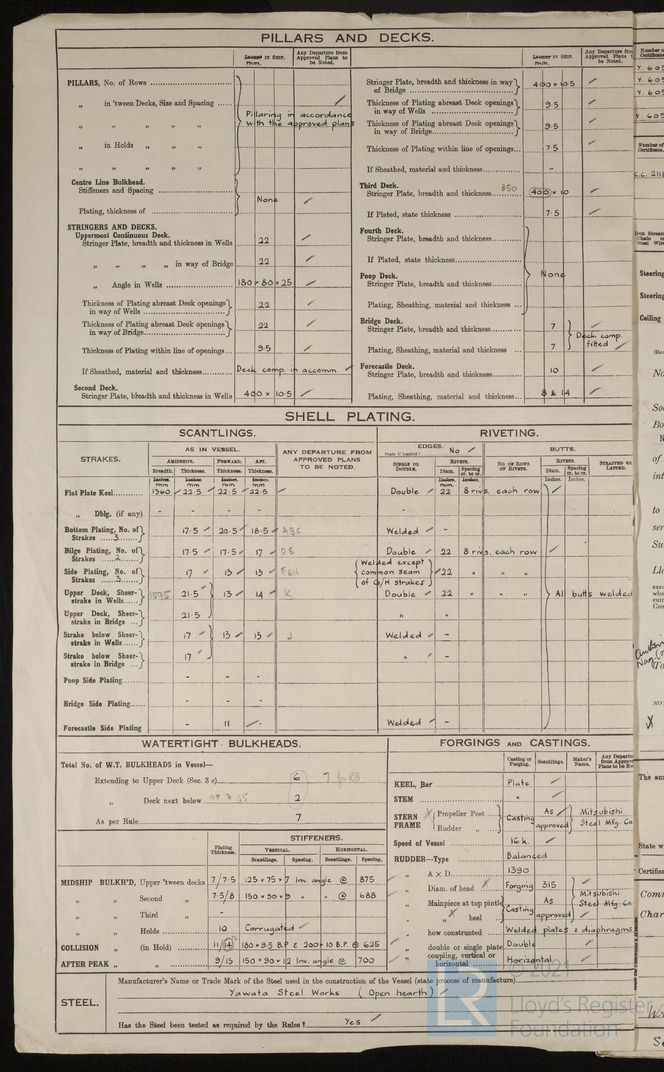 PILLARS AND DECKS.
LENGTH IN SHIP. mm. Any Departure from Approved Plans to be Noted.
PILLARS, No. of Rows
„ in 'tween Decks, Size and Spacing
Pillaring in accordance with the approved plans
„ „ „ „ „
„ in Holds „ „
„ „ „ „ „
Centre Line Bulkhead.
Stiffeners and Spacing
None
Plating, thickness of
STRINGERS AND DECKS.
Uppermost Continuous Deck.
Stringer Plate, breadth and thickness in Wells 22
„ „ „ „ in way of Bridge 22
„ Angle in Wells 180 × 80 × 25
Thickness of Plating abreast Deck openings in way of Wells 22
Thickness of Plating abreast Deck openings in way of Bridge 22
Thickness of Plating within line of openings 9.5
If Sheathed, material and thickness Deck comp. in accomm.
Second Deck.
Stringer Plate, breadth and thickness in Wells 400 × 10.5
Stringer Plate, breadth and thickness in way of Bridge 400 × 10.5
Thickness of Plating abreast Deck openings in way of Wells 9.5
Thickness of Plating abreast Deck openings in way of Bridge 9.5
Thickness of Plating within line of openings 7.5
If Sheathed, material and thickness -
Third Deck.
Stringer Plate, breadth and thickness 850 400 × 10
If Plated, state thickness 7.5
Fourth Deck.
Stringer Plate, breadth and thickness
If Plated, state thickness
Poop Deck.
Stringer Plate, breadth and thickness
None
Plating, Sheathing, material and thickness
Bridge Deck.
Stringer Plate, breadth and thickness 7
Plating, Sheathing, material and thickness 7 Deck comp. fitted
Forecastle Deck.
Stringer Plate, breadth and thickness 10
Plating, Sheathing, material and thickness 8 & 14
SHELL PLATING.
SCANTLINGS. RIVETING.
STRAKES. AS IN VESSEL. ANY DEPARTURE FROM APPROVED PLANS TO BE NOTED. EDGES. No BUTTS.
AMIDSHIPS. FORWARD. AFT. SINGLE OR DOUBLE. RIVETS. NO. OF ROWS OF RIVETS. RIVETS. STRAPPED OR LAPPED.
Breadth. Thickness. Thickness. Thickness. Diam. Spacing cr. to cr. Diam. Spacing cr. to cr.
Flat Plate Keel 1360 22.5 22.5 22.5 Double 22 8 rivs. each row
„ Dblg. (if any) - - - -
Bottom Plating, No. of Strakes 3 17.5 20.5 18.5 ABC Welded -
Bilge Plating, No. of Strakes 2 17.5 17.5 17 DE Double 22 8 rivs. each row
Side Plating, No. of Strakes 3 17 13 13 FGH (Welded except common seam of G/H strakes) 22 „ „ „
Upper Deck, Sheerstrake in Wells 1595 21.5 13 14 K Double 22 „ „ „ All butts welded
Upper Deck, Sheerstrake in Bridge 21.5 „
Strake below Sheerstrake in Wells 17 13 13 J Welded -
Strake below Sheerstrake in Bridge 17 „ -
Poop Side Plating - - -
Bridge Side Plating - - -
Forecastle Side Plating - 11 - Welded -
WATERTIGHT BULKHEADS.
Total No. of W.T. BULKHEADS in Vessel—
Extending to Upper Deck (Sec. 3 c) 6 7
„ Deck next below 2
As per Rule 7
STIFFENERS.
Plating Thickness. VERTICAL. HORIZONTAL.
Scantlings. Spacing. Scantlings. Spacing.
MIDSHIP BULKH'D, Upper 'tween decks 7/7.5 125 × 75 × 7 Inv. angle @ 875
„ „ Second „ 7.5/8 150 × 90 × 9 „ „ @ 688
„ „ Third „ -
„ „ Holds 10 Corrugated
COLLISION „ (in Hold) 11/14 180 × 9.5 B.P & 200 × 10 B.P. @ 625
AFTER PEAK „ „ 9/13 150 × 90 × 12 Inv. angle @ 700
FORGINGS AND CASTINGS.
Casting or Forging. Scantlings. Maker's Name.
KEEL, Bar Plate
STEM „
STERN FRAME Propeller Post Rudder „ Casting As approved Mitsubishi Steel Mfg. Co
Speed of Vessel 16 k.
RUDDER—Type Balanced
„ A × D 1390
„ Diam. of head Forging 315
„ Mainpiece at top pintle Casting As approved Mitsubishi Steel Mfg. Co.
„ „ heel
„ how constructed Welded plates & diaphragms
„ double or single plate Double
„ coupling, vertical or horizontal Horizontal
STEEL. Manufacturer's Name or Trade Mark of the Steel used in the construction of the Vessel (state process of manufacture)
Yawata Steel Works (Open hearth)
Has the Steel been tested as required by the Rules? Yes
© 2021
Lloyd's Register
Foundation